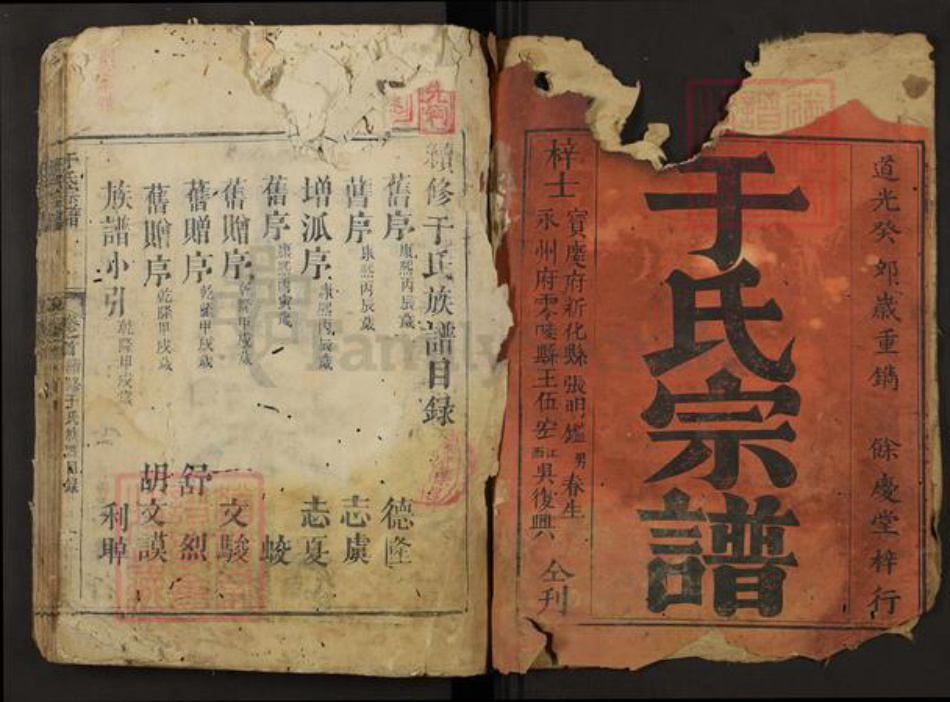 道光癸卯歲重鐫 餘慶堂梓行
于氏宗譜
梓士
寶慶府新化縣張明鑑 男春生
永州府零陵縣王伍安 江西吳復興
仝刊
續修于氏族譜目録
舊序 康熙丙辰歲 德隆
舊序 康熙丙辰歲 志虞
增派序 康熙丙辰歲 志夏
舊序 康熙丙寅歲 蛟
舊贈序 乾隆甲戌歲 文駿
舊贈序 乾隆甲戌歲 舒烈
舊贈序 乾隆甲戌歲 胡文謨
族譜小引 乾隆甲戌歲 利璋
于氏宗譜 卷之首 續修于氏族譜目録